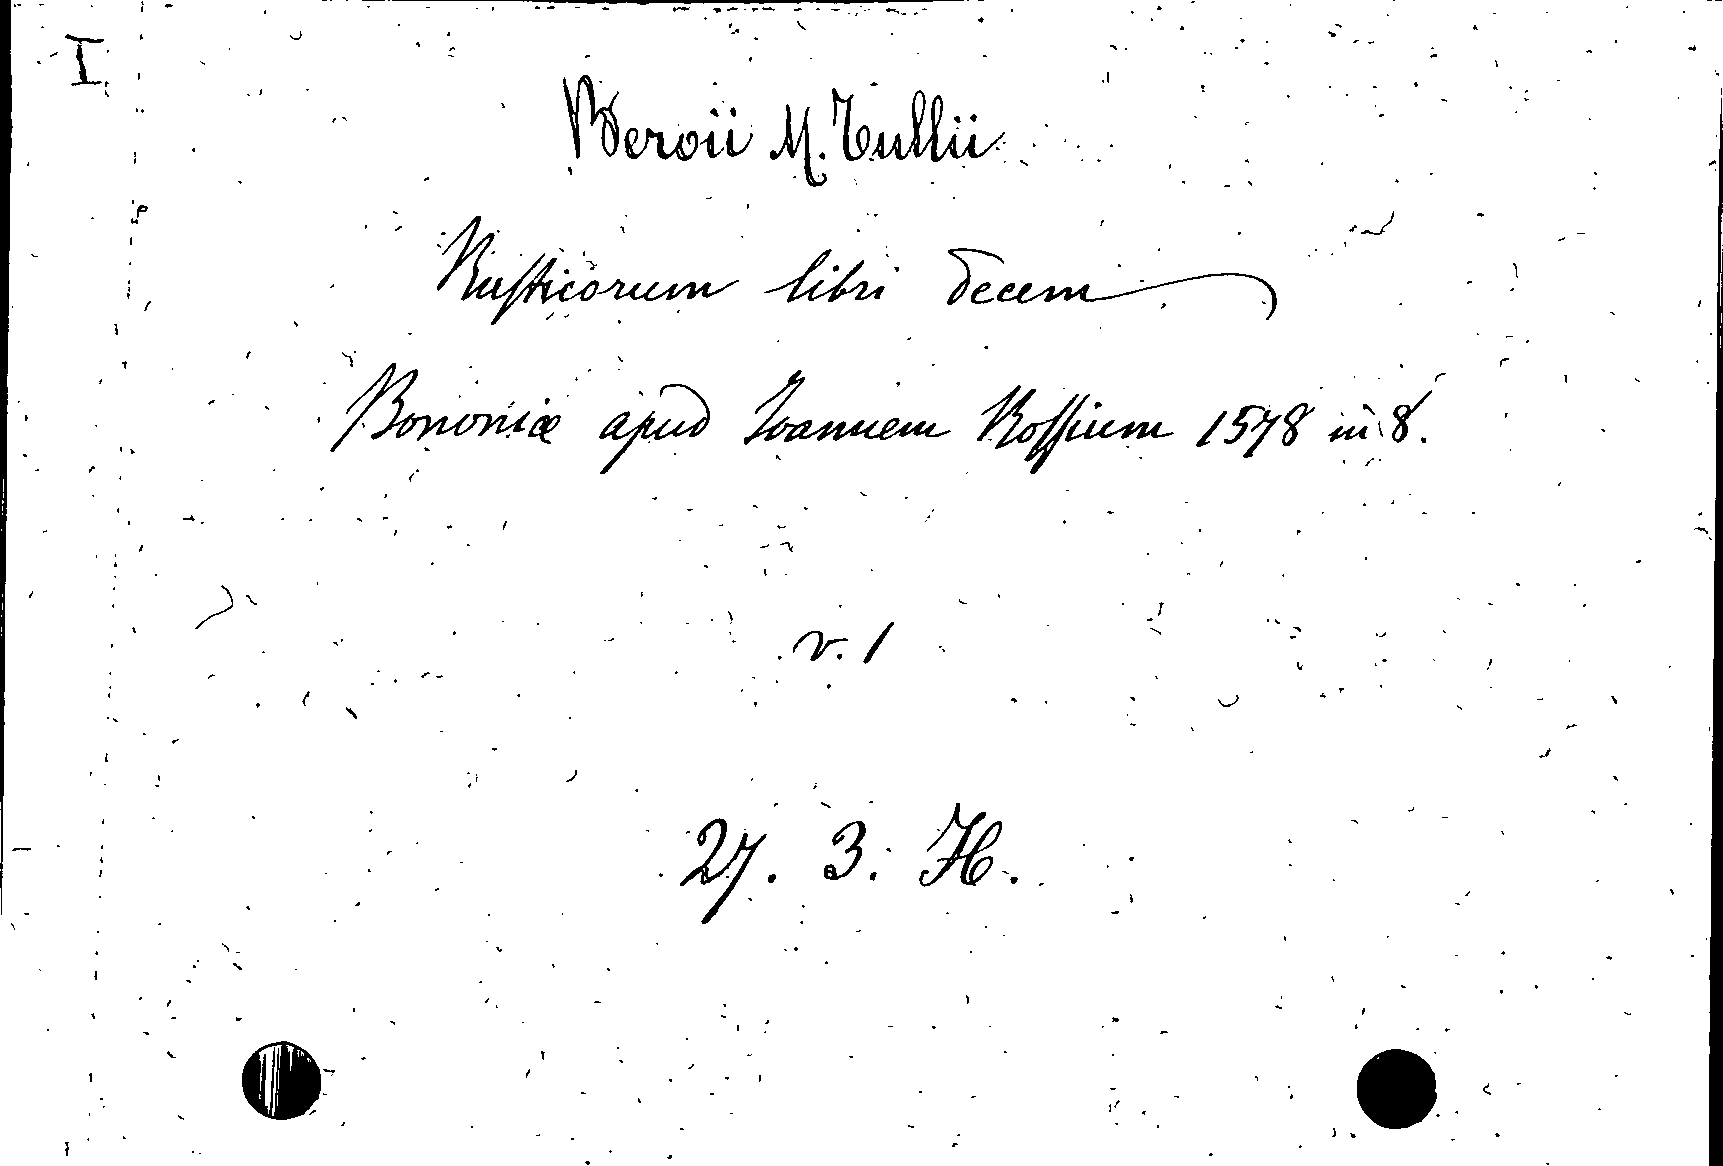 I
Beroii M. Tullii
Rusticorum libri decem
Bononiæ apud Ioannem Rossium 1578 in 8.
v. 1
27. 3. H.